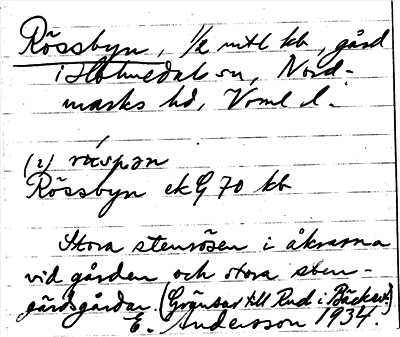 Rössbyn, 1/2 mtl kb, gård
i Holmedals sn, Nord-
marks hd, Vrml l.
(2) rǿspən
Rössbyn ek G 70 kb
Stora stenrösen i åkrarna
vid gården och stora sten-
gärdsgårdar. (Gränsar till Rud i Bäckev.)
E. Andersson 1934.